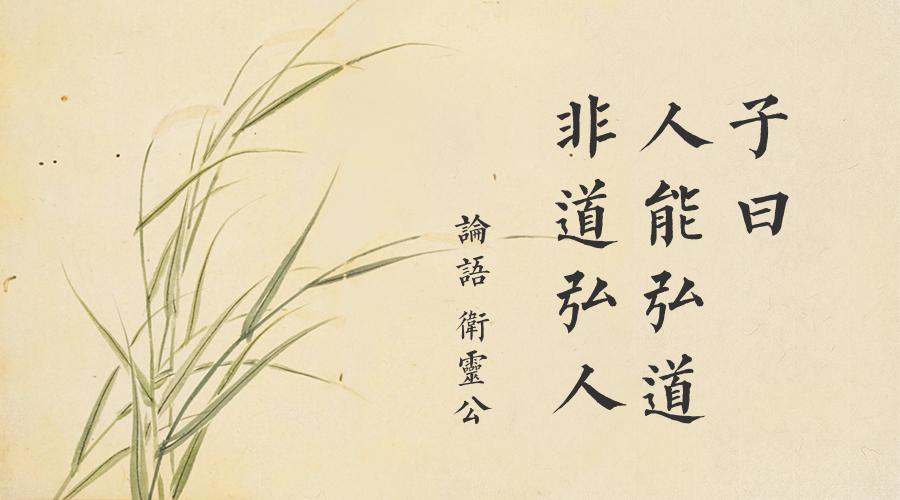 子曰
人能弘道
非道弘人
論語 衛靈公